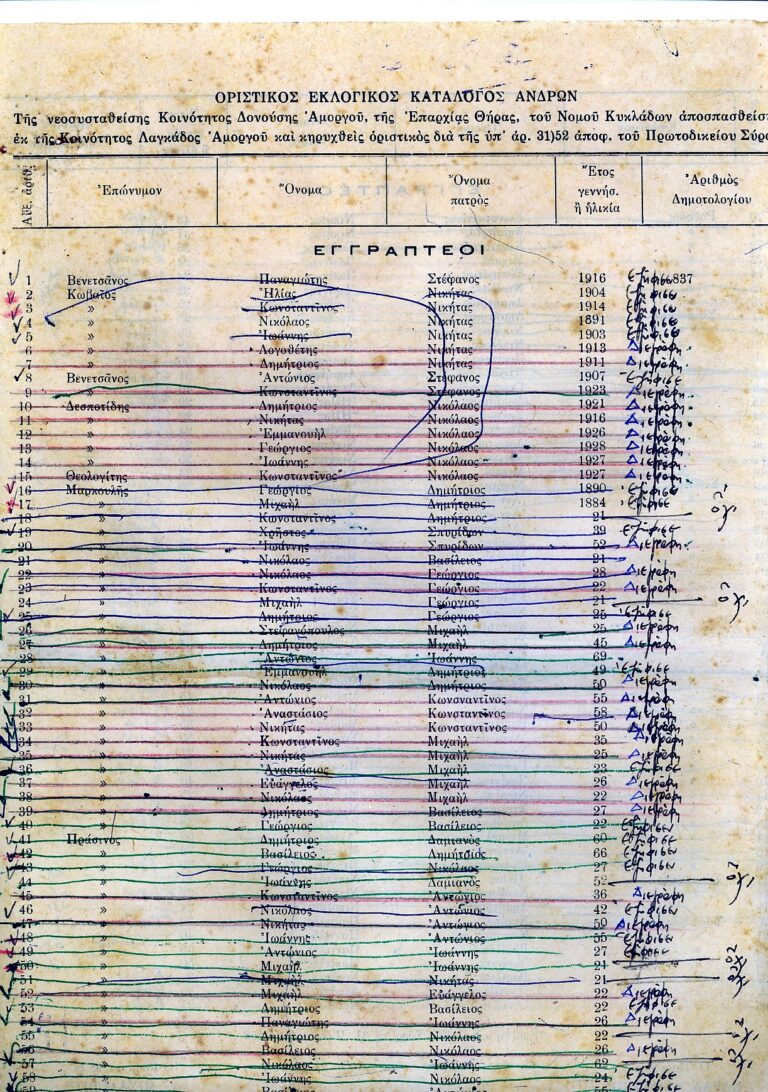 ΟΡΙΣΤΙΚΟΣ ΕΚΛΟΓΙΚΟΣ ΚΑΤΑΛΟΓΟΣ ΑΝΔΡΩΝ
Τῆς νεοσυσταθείσης Κοινότητος Δονούσης Ἀμοργοῦ, τῆς Ἐπαρχίας Θήρας, τοῦ Νομοῦ Κυκλάδων
ἐκ τῆς Κοινότητος Λαγκάδος Ἀμοργοῦ καὶ κηρυχθεὶς ὁριστικὸς διὰ τῆς ὑπ' ἀρ. 31)52 ἀποφ. τοῦ Πρωτοδικείου
Αὔξ. ἀριθ. Ἐπώνυμον Ὄνομα Ὄνομα πατρὸς Ἔτος γεννήσ. ἢ ἡλικία Ἀριθμὸς Δημοτολογίου
ΕΓΓΡΑΠΤΕΟΙ
1 Βενετσᾶνος Παναγιώτης Στέφανος 1916 ἐψήφισε 837
2 Κωβαῖος Ἠλίας Νικήτας 1904 ἐψήφισε
3 » Κωνσταντῖνος Νικήτας 1914 ἐψήφισε
4 » Νικόλαος Νικήτας 1891 ἐψήφισε
5 » Ἰωάννης Νικήτας 1903 ἐψήφισε
6 » Λογοθέτης Νικήτας 1913 Διεγράφη
7 » Δημήτριος Νικήτας 1911 Διεγράφη
8 Βενετσᾶνος Ἀντώνιος Στέφανος 1907 ἐψήφισε
9 » Κωνσταντῖνος Στέφανος 1923 Διεγράφη
10 Δεσποτίδης Δημήτριος Νικόλαος 1921 Διεγράφη
11 » Νικήτας Νικόλαος 1916 Διεγράφη
12 » Ἐμμανουὴλ Νικόλαος 1926 Διεγράφη
13 » Γεώργιος Νικόλαος 1928 Διεγράφη
14 » Ἰωάννης Νικόλαος 1927 Διεγράφη
15 Θεολογίτης Κωνσταντῖνος Νικόλαος 1927 Διεγράφη
16 Μαρκουλῆς Γεώργιος Δημήτριος 1890 ἐψήφισε
17 » Μιχαὴλ Δημήτριος 1884 ἐψήφισε
18 » Κωνσταντῖνος Δημήτριος 21 ὄχι
19 » Χρῆστος Σπυρίδων 39 ἐψήφισε
20 » Ἰωάννης Σπυρίδων 52 Διεγράφη
21 » Νικόλαος Βασίλειος 21
22 » Νικόλαος Γεώργιος 28 Διεγράφη
23 » Κωνσταντῖνος Γεώργιος 22 Διεγράφη
24 » Μιχαὴλ Γεώργιος 21 ὄχι
25 » Δημήτριος Γεώργιος 25 ἐψήφισε
26 » Στεφανόπουλος Μιχαὴλ 25 Διεγράφη
27 » Δημήτριος Μιχαὴλ 45 Διεγράφη
28 » Ἀντώνιος Ἰωάννης 69
29 » Ἐμμανουὴλ Δημήτριος 49 ἐψήφισε
30 » Νικόλαος Δημήτριος 50 Διεγράφη
31 » Ἀντώνιος Κωνσναντῖνος 55 Διεγράφη
32 » Ἀναστάσιος Κωνσταντῖνος 58 Διεγράφη
33 » Νικήτας Κωνσταντῖνος 50 Διεγράφη
34 » Κωνσταντῖνος Μιχαὴλ 35 Διεγράφη
35 » Νικήτας Μιχαὴλ 25 Διεγράφη
36 » Ἀναστάσιος Μιχαὴλ 23 ἐψήφισε
37 » Εὐάγγελος Μιχαὴλ 26 Διεγράφη
38 » Νικόλαος Μιχαὴλ 22 Διεγράφη
39 » Δημήτριος Βασίλειος 27 Διεγράφη
40 » Γεώργιος Βασίλειος 22 ἐψήφισεν
41 Πράσινος Δημήτριος Δαμιανὸς 60 ἐψήφισεν
42 » Βασίλειος Δημήτσιος 66 ἐψήφισεν
43 » Γεώργιος Νικόλαος 27 ἐψήφισεν
44 » Ἰωάννης Δαμιανὸς 52 ὄχι
45 » Κωνσταντῖνος Ἀντώνιος 36 Διεγράφη
46 » Νικόλαος Ἀντώνιος 42 ἐψήφισεν
47 » Νικήτας Ἀντώνιος 59 Διεγράφη
48 » Ἰωάννης Ἀντώνιος 55 ἐψήφισεν
49 » Ἀντώνιος Ἰωάννης 27 ἐψήφισεν
50 » Μιχαὴλ Ἰωάννης 21 ὄχι
51 » Μιχαὴλ Νικήτας 21 ὄχι
52 » Μιχαὴλ Εὐάγγελος 22 Διεγράφη
53 » Δημήτριος Βασίλειος 22 ἐψήφισεν
54 » Παναγιώτης Ἰωάννης 26 Διεγράφη
55 » Δημήτριος Νικόλαος 22 ὄχι
56 » Βασίλειος Νικόλαος 26 Διεγράφη
57 » Νικόλαος Ἰωάννης 62 ὄχι
58 » Ἰωάννης Νικόλαος 24 ἐψήφισεν